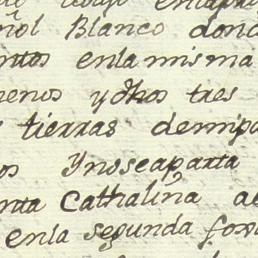 ñol Blanco dond
ntos enlamisma
nenos y dhos tres
tierras demipa
os Ynoseaparta
nta Cathaliña a
enla segunda fo